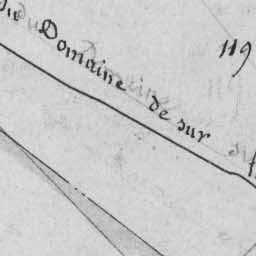 Du Domaine de sur
119